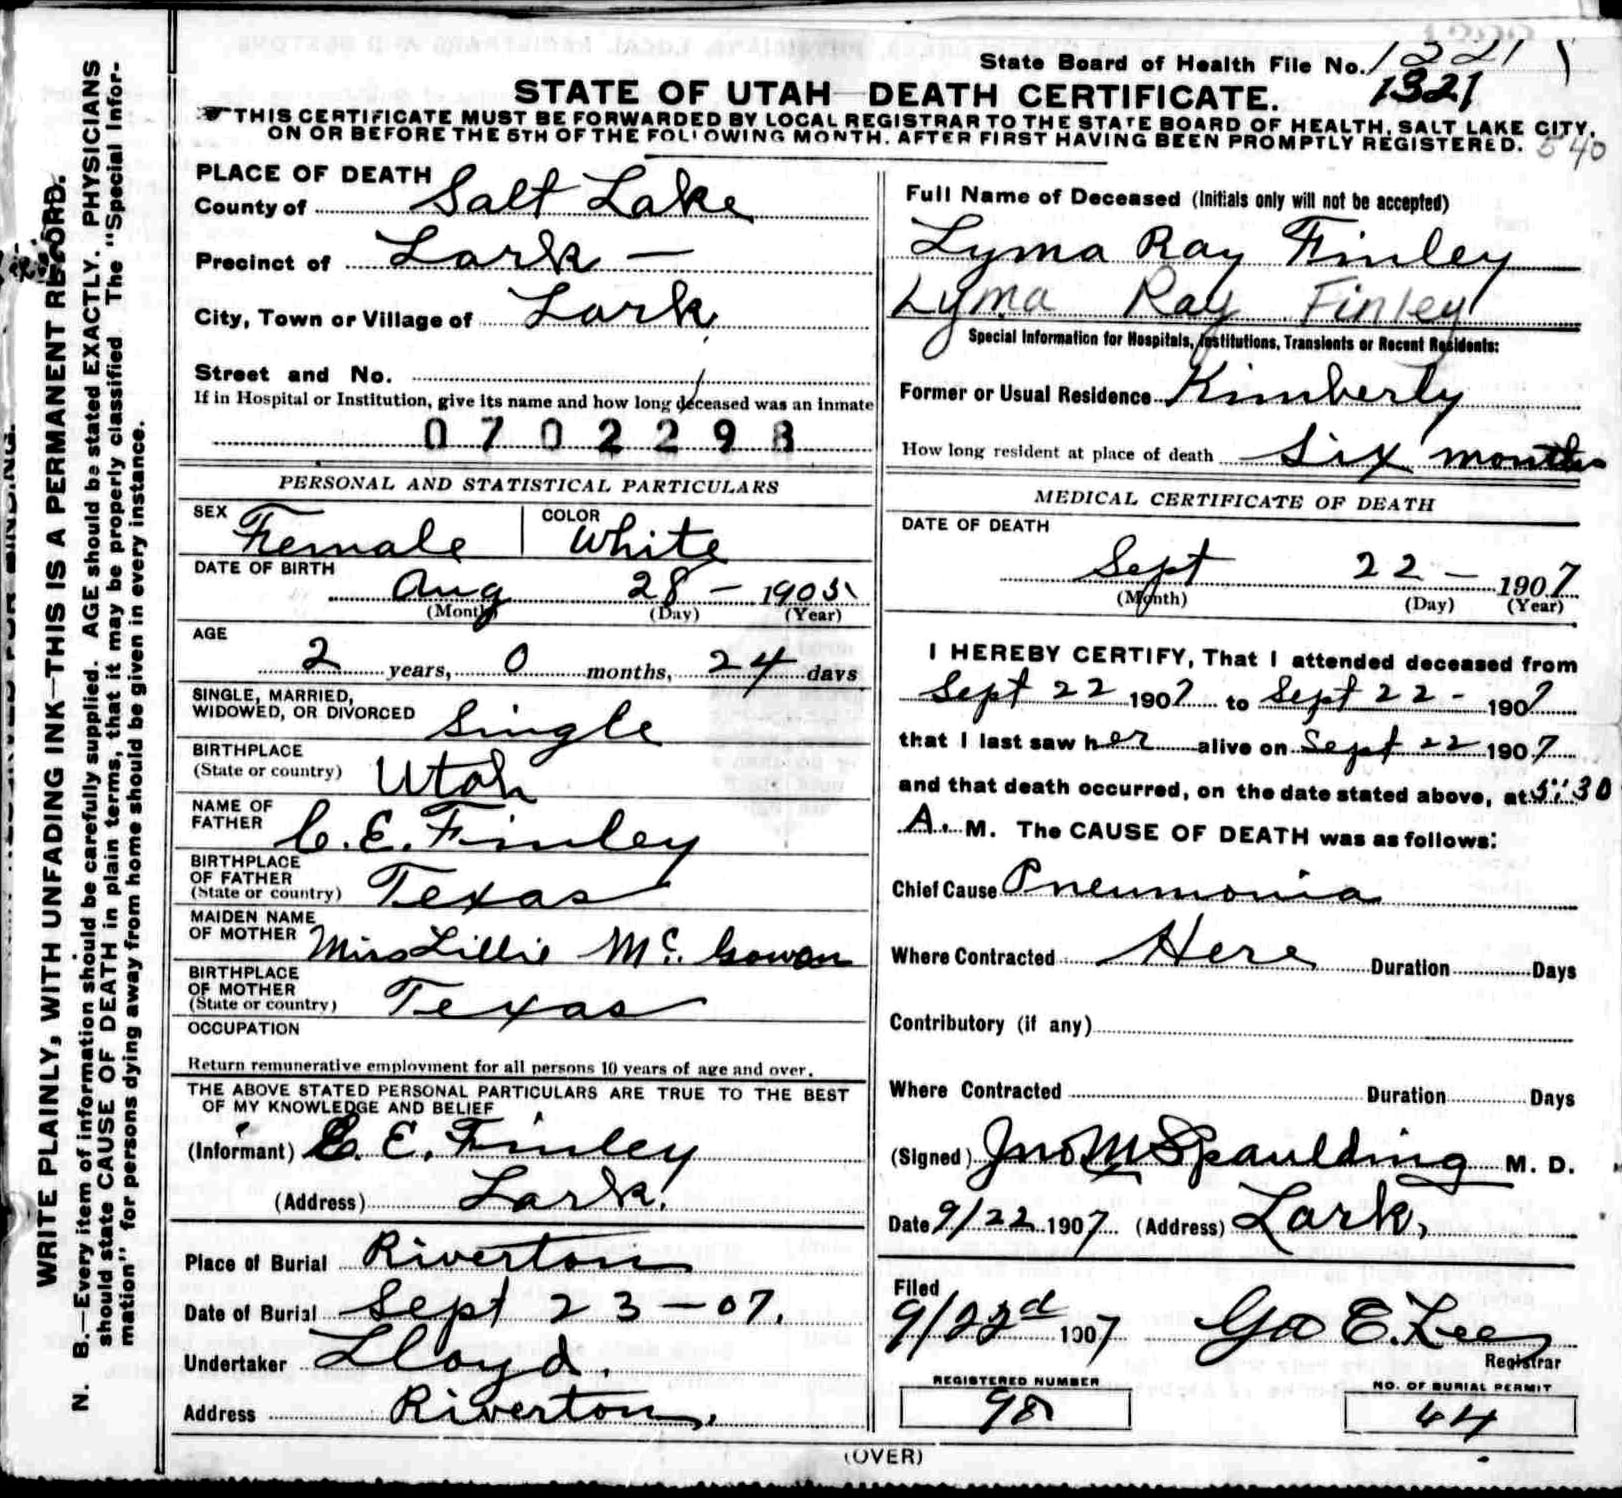 State Board of Health File No. 1321
1321
STATE OF UTAH DEATH CERTIFICATE.
THIS CERTIFICATE MUST BE FORWARDED BY LOCAL REGISTRAR TO THE STATE BOARD OF HEALTH, SALT LAKE CITY,
ON OR BEFORE THE 5TH OF THE FOLLOWING MONTH. AFTER FIRST HAVING BEEN PROMPTLY REGISTERED.
540
WRITE PLAINLY, WITH UNFADING INK—THIS IS A PERMANENT RECORD.
N. B.—Every item of information should be carefully supplied. AGE should be stated EXACTLY. PHYSICIANS
should state CAUSE OF DEATH in plain terms, that it may be properly classified The "Special Infor-
mation" for persons dying away from home should be given in every instance.
PLACE OF DEATH
County of Salt Lake
Precinct of Lark —
City, Town or Village of Lark
Street and No.
If in Hospital or Institution, give its name and how long deceased was an inmate
0702298
PERSONAL AND STATISTICAL PARTICULARS
SEX Female COLOR White
DATE OF BIRTH
Aug 28 — 1905
(Month) (Day) (Year)
AGE
2 years, 0 months, 24 days
SINGLE, MARRIED,
WIDOWED, OR DIVORCED Single
BIRTHPLACE
(State or country) Utah
NAME OF
FATHER C. E. Finley
BIRTHPLACE
OF FATHER
(State or country) Texas
MAIDEN NAME
OF MOTHER Miss Lillie McGowan
BIRTHPLACE
OF MOTHER
(State or country) Texas
OCCUPATION
Return remunerative employment for all persons 10 years of age and over.
THE ABOVE STATED PERSONAL PARTICULARS ARE TRUE TO THE BEST
OF MY KNOWLEDGE AND BELIEF
(Informant) C. E. Finley
(Address) Lark.
Place of Burial Riverton
Date of Burial Sept 23 — 07.
Undertaker Lloyd.
Address Riverton.
Full Name of Deceased (Initials only will not be accepted)
Lyma Ray Finley
Lyma Ray Finley
Special Information for Hospitals, Institutions, Transients or Recent Residents:
Former or Usual Residence Kimberly
How long resident at place of death Six months
MEDICAL CERTIFICATE OF DEATH
DATE OF DEATH
Sept 22 — 1907
(Month) (Day) (Year)
I HEREBY CERTIFY, That I attended deceased from
Sept 22 1907 to Sept 22 - 1907
that I last saw her alive on Sept 22 1907
and that death occurred, on the date stated above, at 5:30
A. M. The CAUSE OF DEATH was as follows:
Chief Cause Pneumonia
Where Contracted Here Duration Days
Contributory (if any)
Where Contracted Duration Days
(Signed) Jno M Spaulding M. D.
Date 9/22 1907 (Address) Lark,
Filed
9/22d 1907 Geo E. Lee
Registrar
REGISTERED NUMBER
98
NO. OF BURIAL PERMIT
44
(OVER)